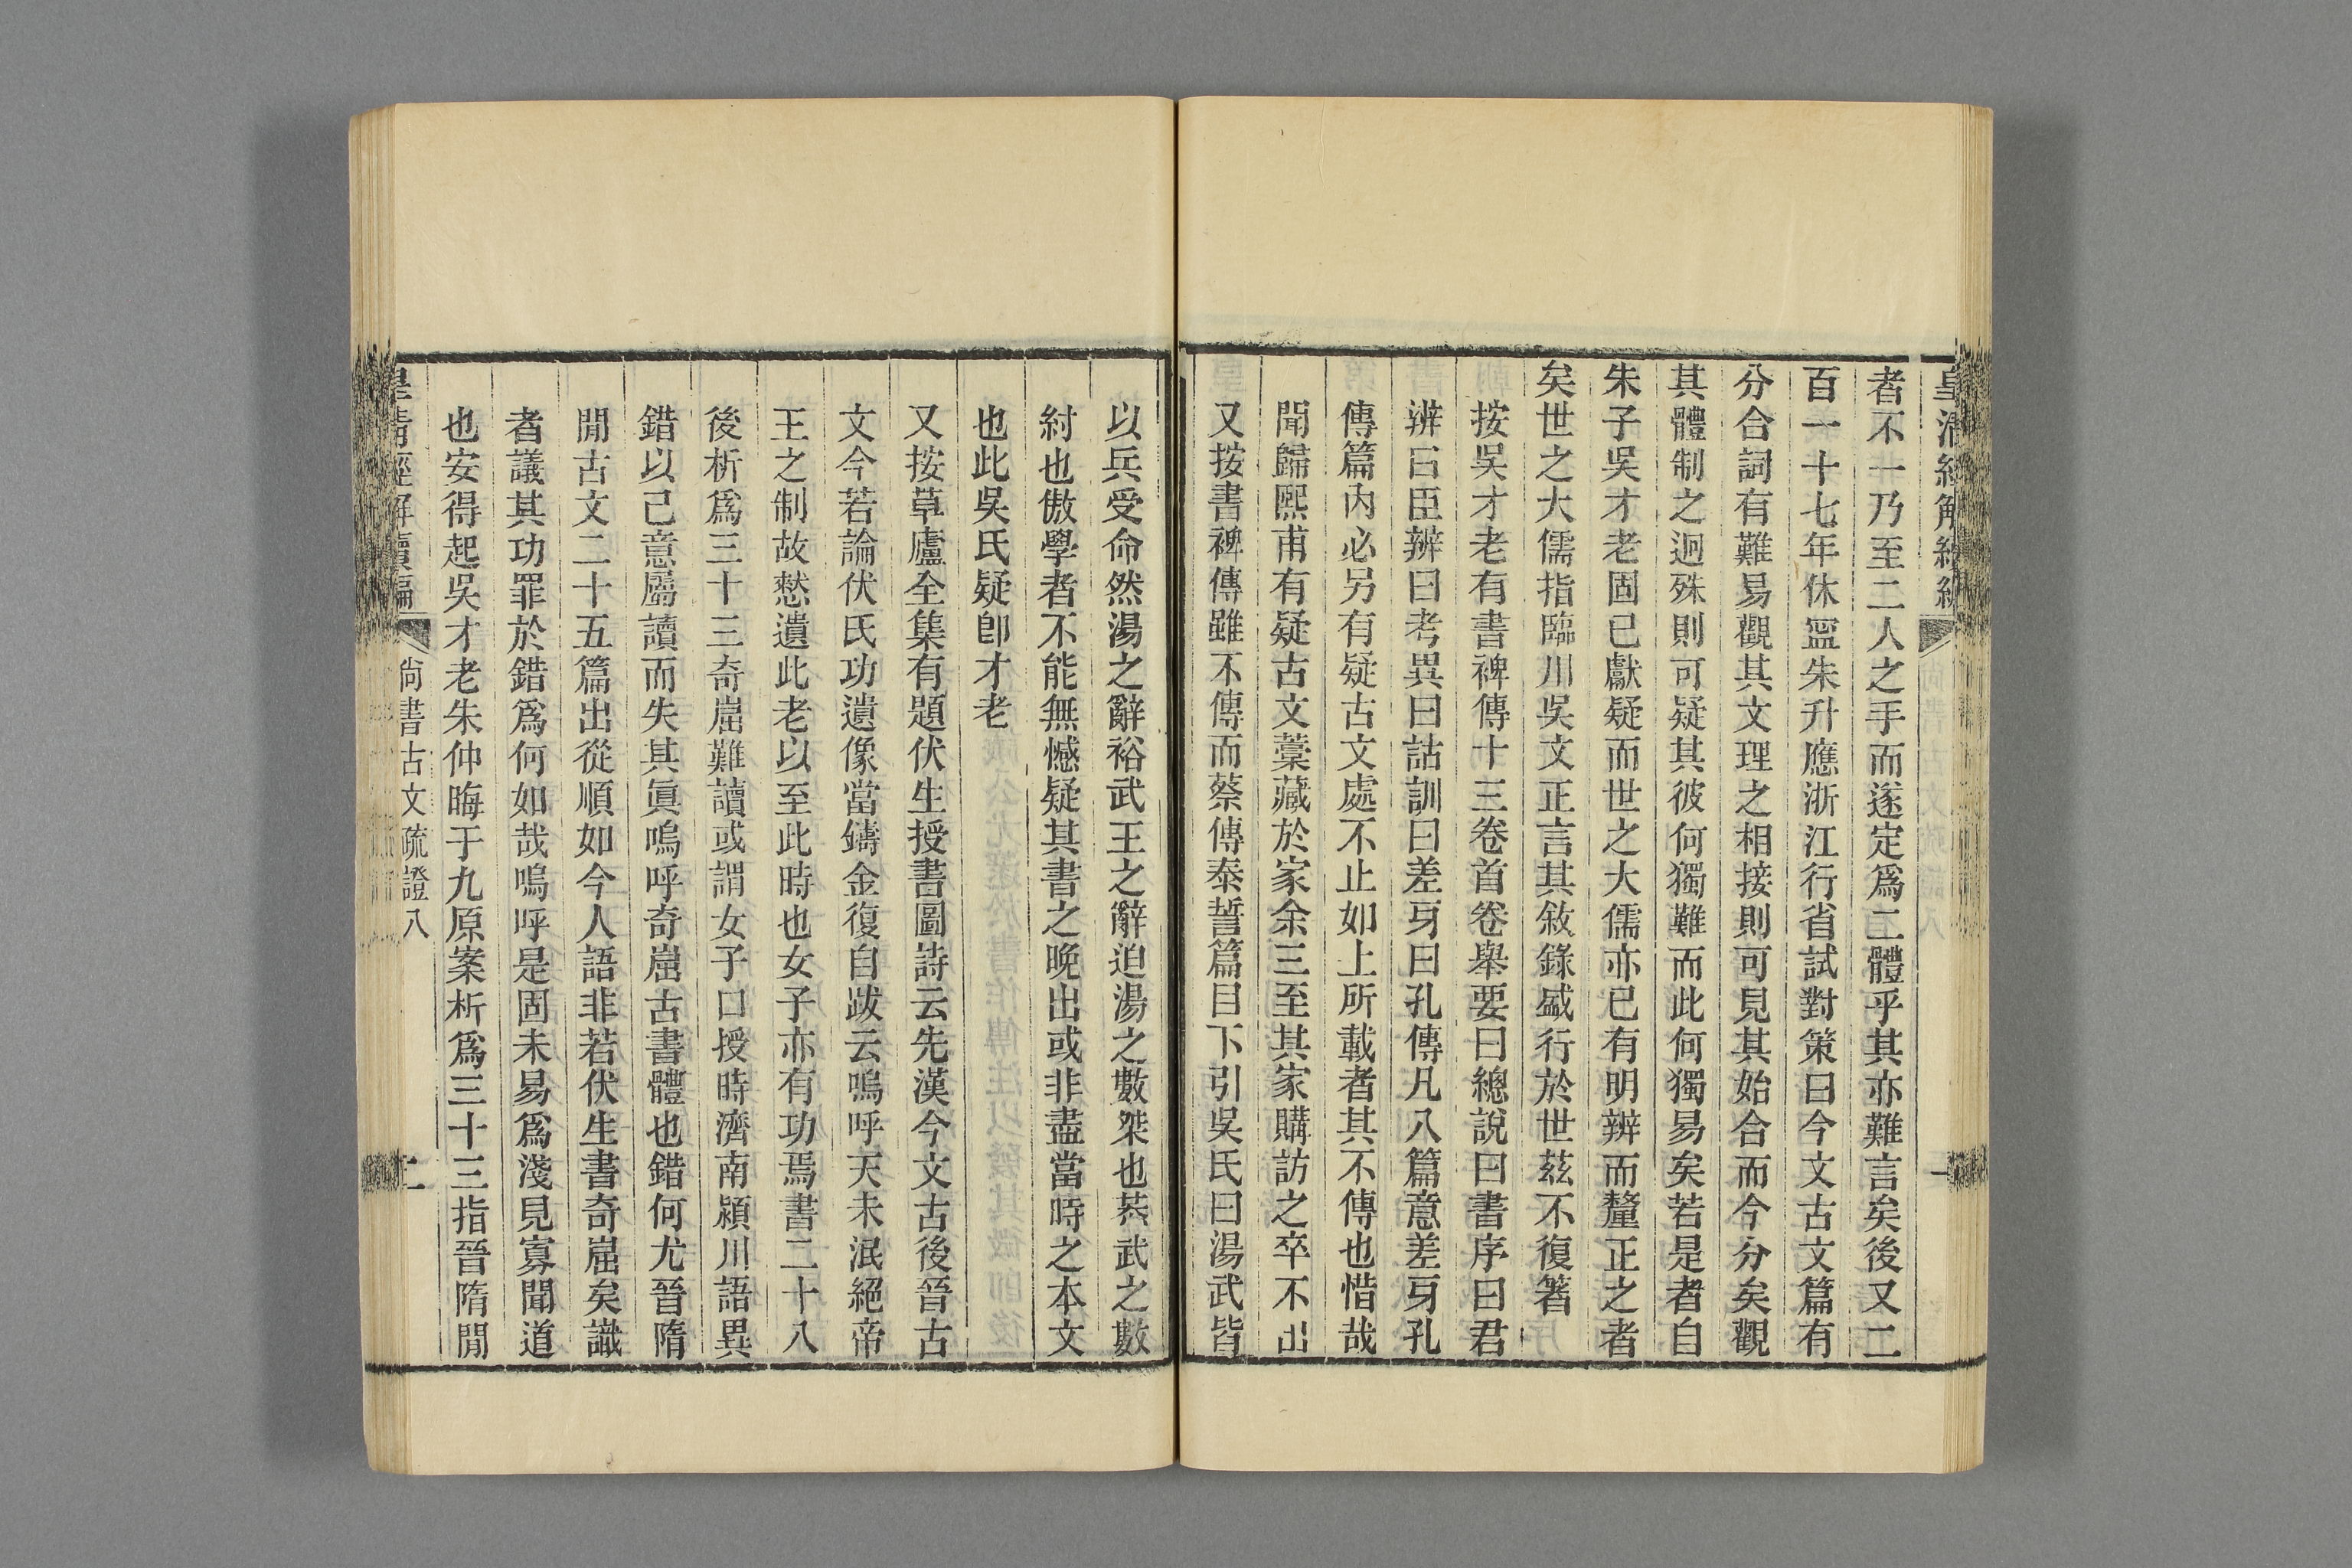 者不一乃至二人之手而遂定爲二體乎其亦難言矣後又二
百一十七年休寧朱升應浙江行省試對策曰今文古文篇有
分合詞有難易觀其文理之相接則可見其始合而今分矣觀
其體制之迥殊則可疑其彼何獨難而此何獨易矣若是者自
朱子吳才老固已獻疑而世之大儒亦已有明辨而釐正之者
矣世之大儒指臨川吳文正言其敘錄盛行於世茲不復箸
按吳才老有書裨傳十三卷首卷舉要曰總說曰書序曰君
辨曰臣辨曰考異曰詁訓曰差牙曰孔傳凡八篇意差牙孔
傳篇內必另有疑古文處不止如上所載者其不傳也惜哉
聞歸熙甫有疑古文藁藏於家余三至其家購訪之卒不出
又按書裨傳雖不傳而蔡傳泰誓篇目下引吳氏曰湯武皆
以兵受命然湯之辭裕武王之辭迫湯之數桀也恭武之數
紂也傲學者不能無憾疑其書之晚出或非盡當時之本文
也此吳氏疑卽才老
又按草廬全集有題伏生授書圖詩云先漢今文古後晉古
文今若論伏氏功遺像當鑄金復自跋云嗚呼天未泯絕帝
王之制故憖遺此老以至此時也女子亦有功焉書二十八
後析爲三十三奇崛難讀或謂女子口授時濟南潁川語異
錯以己意屬讀而失其眞嗚呼奇崛古書體也錯何尤晉隋
閒古文二十五篇出從順如今人語非若伏生書奇崛矣識
者議其功罪於錯爲何如哉嗚呼是固未易爲淺見寡聞道
也安得起吳才老朱仲晦于九原案析爲三十三指晉隋閒
皇清經解續編 尙書古文疏證八 二